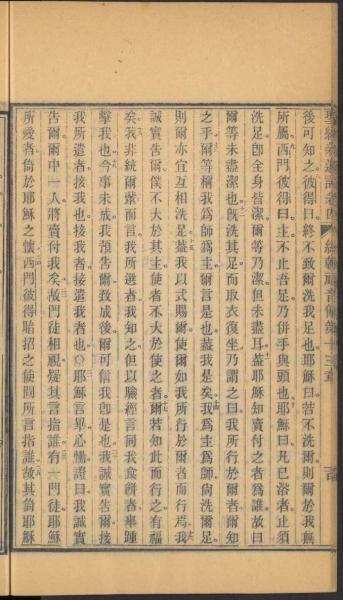 後可知之彼得曰終不致爾洗我足也耶穌曰若不洗爾則爾於我無
所屬西門彼得曰主不止吾足乃併手與頭也耶穌曰凡已浴者止須
洗足卽全身皆潔爾等乃潔但未盡耳蓋耶穌知賣付之者爲誰故曰
爾等未盡潔也旣洗其足而取衣復坐乃謂之曰我所行於爾者爾知
之乎爾等稱我爲師爲主爾言是也蓋我是矣我爲主爲師尚洗爾足
則爾亦宜互相洗足蓋我以式賜爾使爾如我所行於爾者而行焉我
誠實告爾僕不大於其主使者不大於使之者爾若知此而行之有福
矣我非統爾輩而言我所選者我知之但以驗經言同我食餅者舉踵
擊我也今事未成我預告爾致成後爾可信我卽是也我誠實告爾接
我所遣者接我也接我者接遣我者也〇耶穌言畢心慟證曰我誠實
告爾爾中一人將賣付我矣故門徒相視疑其言指誰有一門徒耶穌
所愛者倚於耶穌之懷西門彼得貽招之使問所言指誰故其倚耶穌